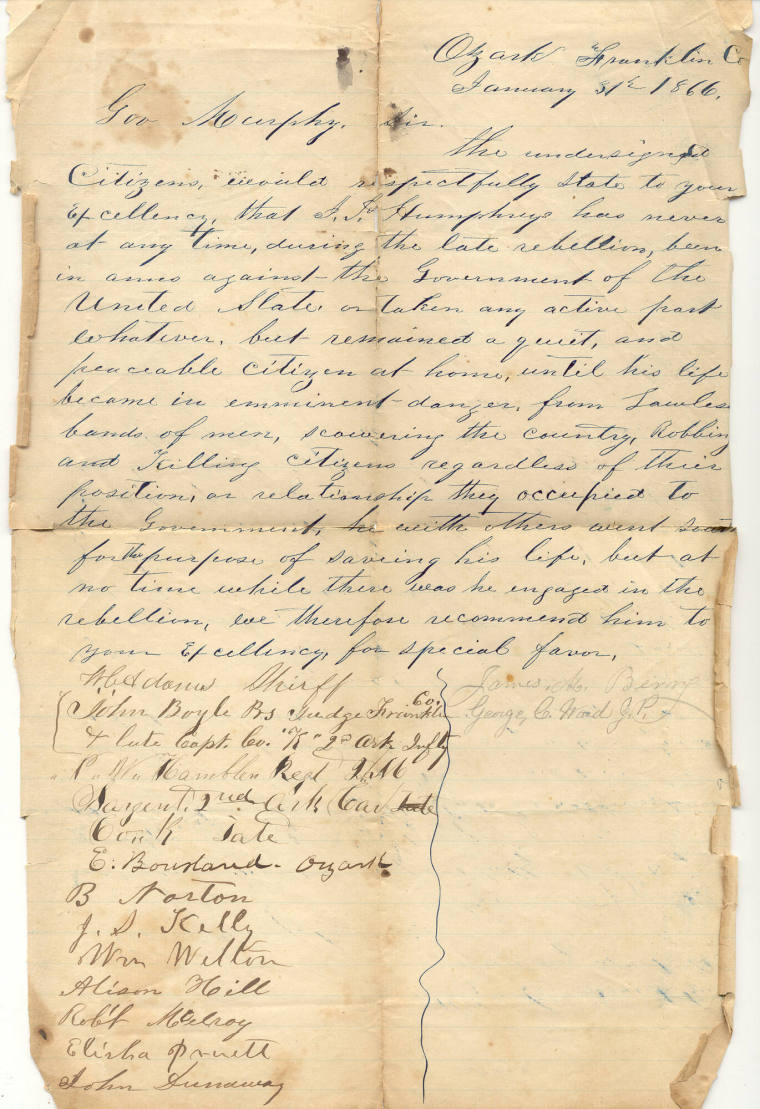 Ozark Franklin Co
January 31st 1866.
Gov Murphy, Sir.
The undersigned
Citizens, would respectfully state to your
Excellency, that J. P. Humphrys has never
at any time, during the late rebellion, been
in arms against the Government of the
United State or taken any active part
whatever, but remained a quiet, and
peaceable citizen at home, until his life
became in emminent danger, from Lawless
bands of men, scowering the country, Robbing
and Killing citizens regardless of their
position, or relationship they occupied to
the Government, he with others went south
for the purpose of saveing his life, but at
no time while there was he engaged in the
rebellion, we therefore recommend him to
your Excellency, for special favor,
Adams Shirff
John Boyle Prs Judge Franklin Co.
& late Capt. Co. "K" 2nd Ark Infty
Hamblen Regt
Sargent 2nd Ark Cav late
Tate
E. Bourland - Ozark
B Norton
J. S. Kelly
Wm Welton
Alison Hill
Robt McElroy
Elisha Pruett
John Dunaway
James M. Berry
George, C. Wood J.P.